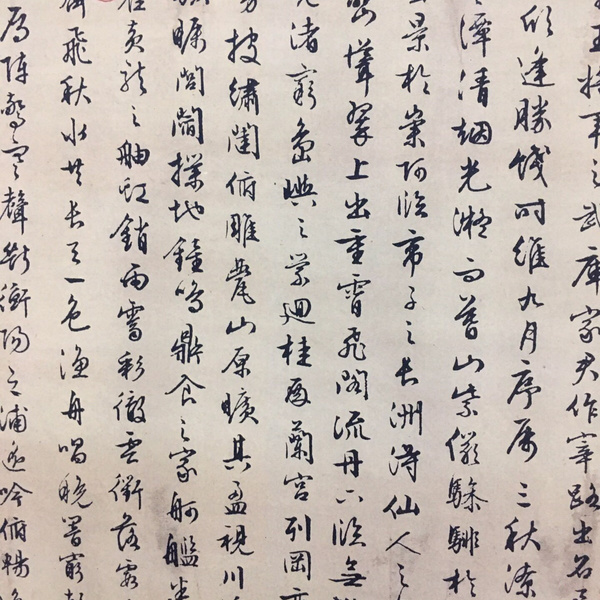 王將軍之武庫家君作宰路出名
躬逢勝餞時維九月序屬三秋潦
潭清烟光凝而暮山紫儼驂騑於
景於崇阿臨帝子之長洲得仙人之
巒聳翠上出重霄飛閣流丹下臨無
渚窮島嶼之縈迴桂殿蘭宮列岡
披繡闥俯雕甍山原曠其盈視川
矚閭閻撲地鐘鳴鼎食之家舸艦
雀黃龍之舳虹銷雨霽彩徹雲衢落霞
齊飛秋水共長天一色漁舟唱晚響窮
雁陣驚寒聲斷衡陽之浦遙吟俯暢